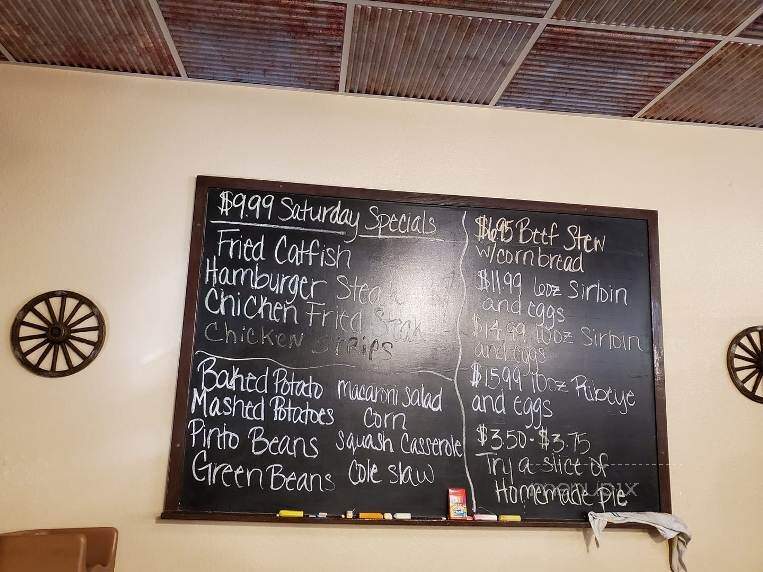 $9.99 Saturday Specials
Fried Catfish
Hamburger Steak
Chicken Fried Steak
Chicken STRIPS
Baked Potato
Mashed Potatoes
Pinto Beans
Green Beans
macaroni salad
Corn
Squash Casserole
Cole slaw
$6.95 Beef Stew
w/cornbread
$11.99 6oz Sirloin
and eggs
$14.99 10oz Sirloin
and eggs
$15.99 10oz Ribeye
and eggs
$3.50-$3.75
Try a slice of
Homemade Pie
menupix